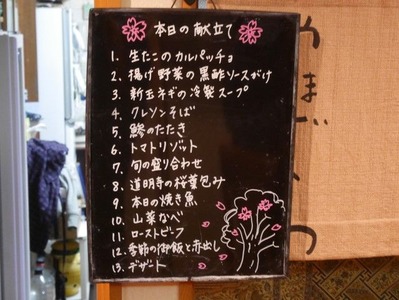 本日の献立て
1. 生たこのカルパッチョ
2. 揚げ野菜の黒酢ソースがけ
3. 新玉ネギの冷製スープ
4. クレソンそば
5. 鯵のたたき
6. トマトリゾット
7. 旬の盛り合わせ
8. 道明寺の桜葉包み
9. 本日の焼き魚
10. 山菜なべ
11. ローストビーフ
12. 季節の御飯と赤出し
13. デザート